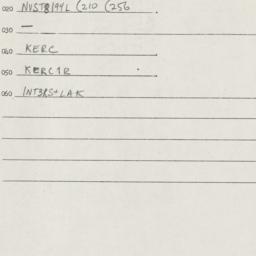 020 NVST8194L (210 (256
030 —
040 KERC
050 KERC1R
060 INT3RS+LAK